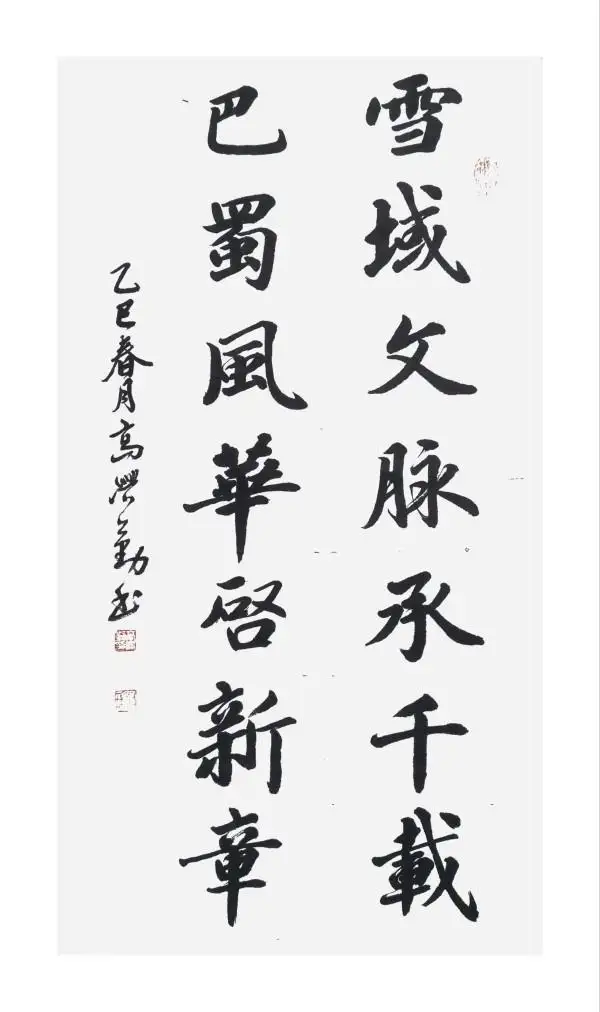 雪域文脉承千載
巴蜀風華啓新章
乙巳春月高學勤书